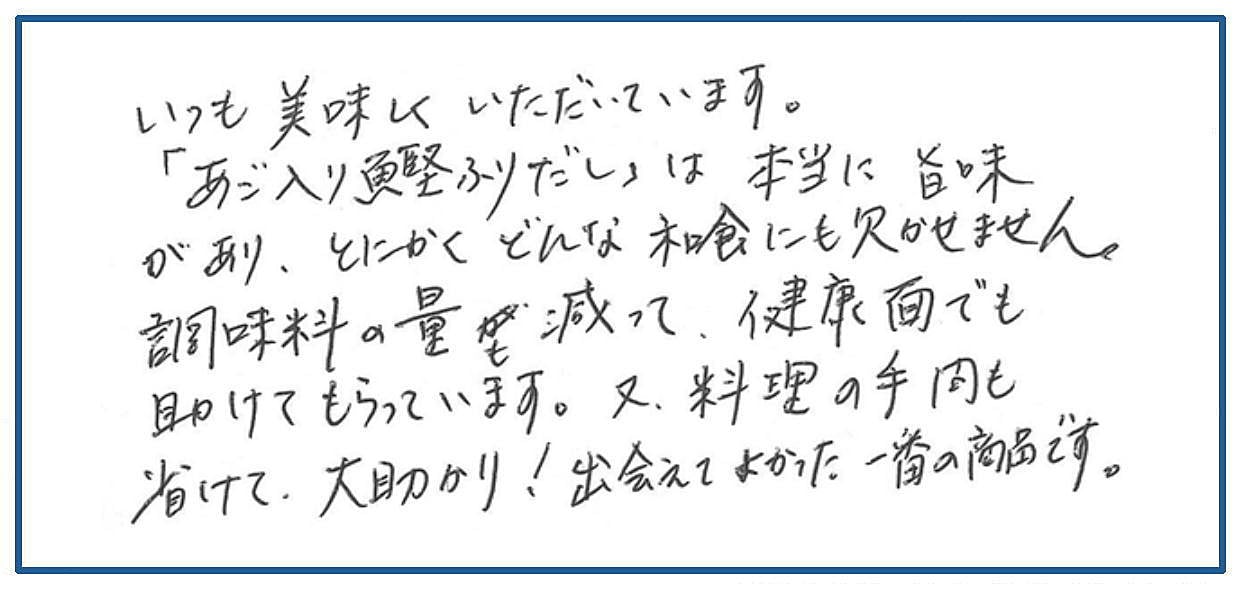 いつも 美味しく いただいています。
「あご入り鰹ふりだし」は 本当に 旨味
があり、とにかく どんな 和食にも欠かせません。
調味料の量も減って、健康面でも
助けてもらっています。又、料理の手間も
省けて、大助かり！出会えてよかった 一番の商品です。